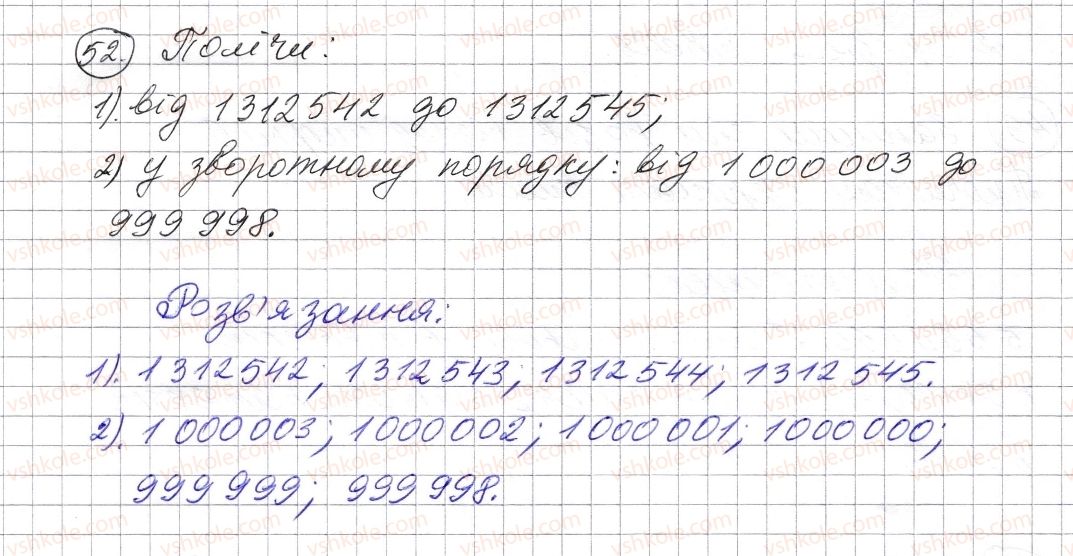 52. Полічи:
1). від 1312542 до 1312545;
2) у зворотному порядку: від 1 000 003 до
999 998.
Розв'язання:
1). 1312542; 1312543; 1312544; 1312545.
2). 1 000 003; 1000 002; 1000 001; 1000 000;
999 999; 999 998.